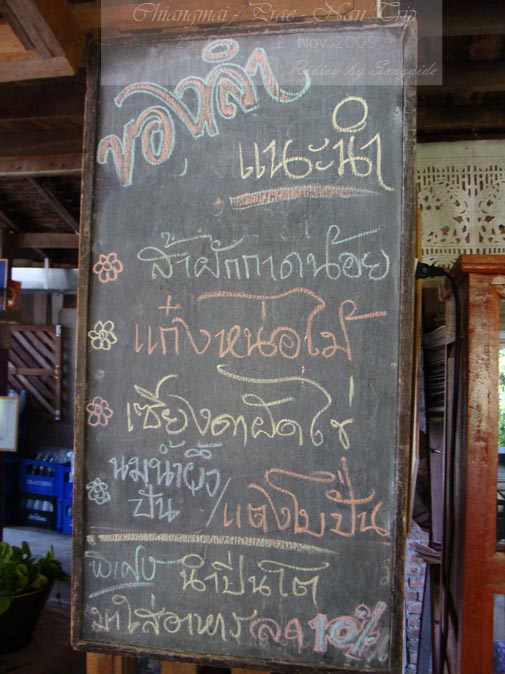 Chiangmai - Prae - Nan Trip
2 Nov 2009
Review by
ของลำ
แนะนำ
ส้าผักกาดน้อย
แก๋งหน่อไม้
เซียงดาผัดไข่
นมน้ำผึ้ง
ปั่น / แตงโมปั่น
พิเศษ นำปิ่นโต
มาใส่อาหารลด 10%